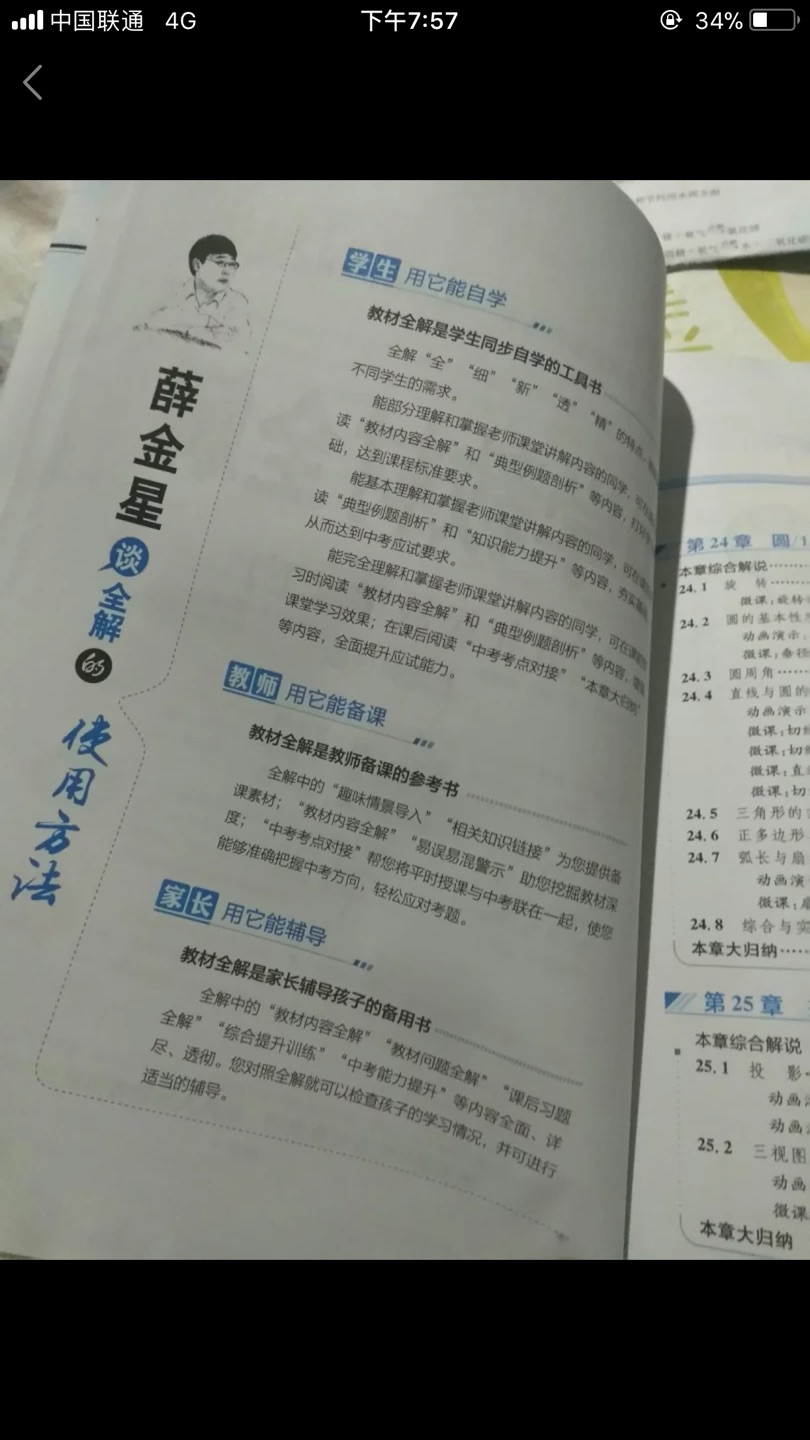 中国联通 4G 下午7:57 34%
薛金星谈全解的使用方法
学生 用它能自学
教材全解是学生同步自学的工具书
全解“全”“细”“新”“透”“精”的特点
不同学生的需求。
能部分理解和掌握老师课堂讲解内容的同学，可在
读“教材内容全解”和“典型例题剖析”等内容，打好
础，达到课程标准要求。
能基本理解和掌握老师课堂讲解内容的同学，可在
读“典型例题剖析”和“知识能力提升”等内容，夯实
从而达到中考应试要求。
能完全理解和掌握老师课堂讲解内容的同学，可在课前
习时阅读“教材内容全解”和“典型例题剖析”等内容，
课堂学习效果；在课后阅读“中考考点对接”“本章大归纳”
等内容，全面提升应试能力。
教师 用它能备课
教材全解是教师备课的参考书
全解中的“趣味情景导入”“相关知识链接”为您提供备
课素材；“教材内容全解”“易误易混警示”助您挖掘教材深
度；“中考考点对接”帮您将平时授课与中考联在一起，使您
能够准确把握中考方向，轻松应对考题。
家长 用它能辅导
教材全解是家长辅导孩子的备用书
全解中的“教材内容全解”“教材问题全解”“课后习题
全解”“综合提升训练”“中考能力提升”等内容全面、详
尽、透彻。您对照全解就可以检查孩子的学习情况，并可进行
适当的辅导。
第24章 圆/1
本章综合解说
24.1 旋 转
微课:旋转
24.2 圆的基本性
动画演示:
微课:垂径
24.3 圆周角
24.4 直线与圆的
动画演示
微课:切
微课:切
微课:直
微课:切
24.5 三角形的
24.6 正多边形
24.7 弧长与扇
动画演
微课:扇
24.8 综合与实
本章大归纳
第25章
本章综合解说
25.1 投 影
动画
动画
25.2 三视图
动画
微课
本章大归纳